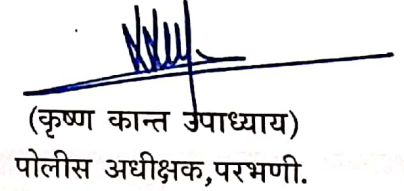 (कृष्ण कान्त उपाध्याय)
पोलीस अधीक्षक,परभणी.